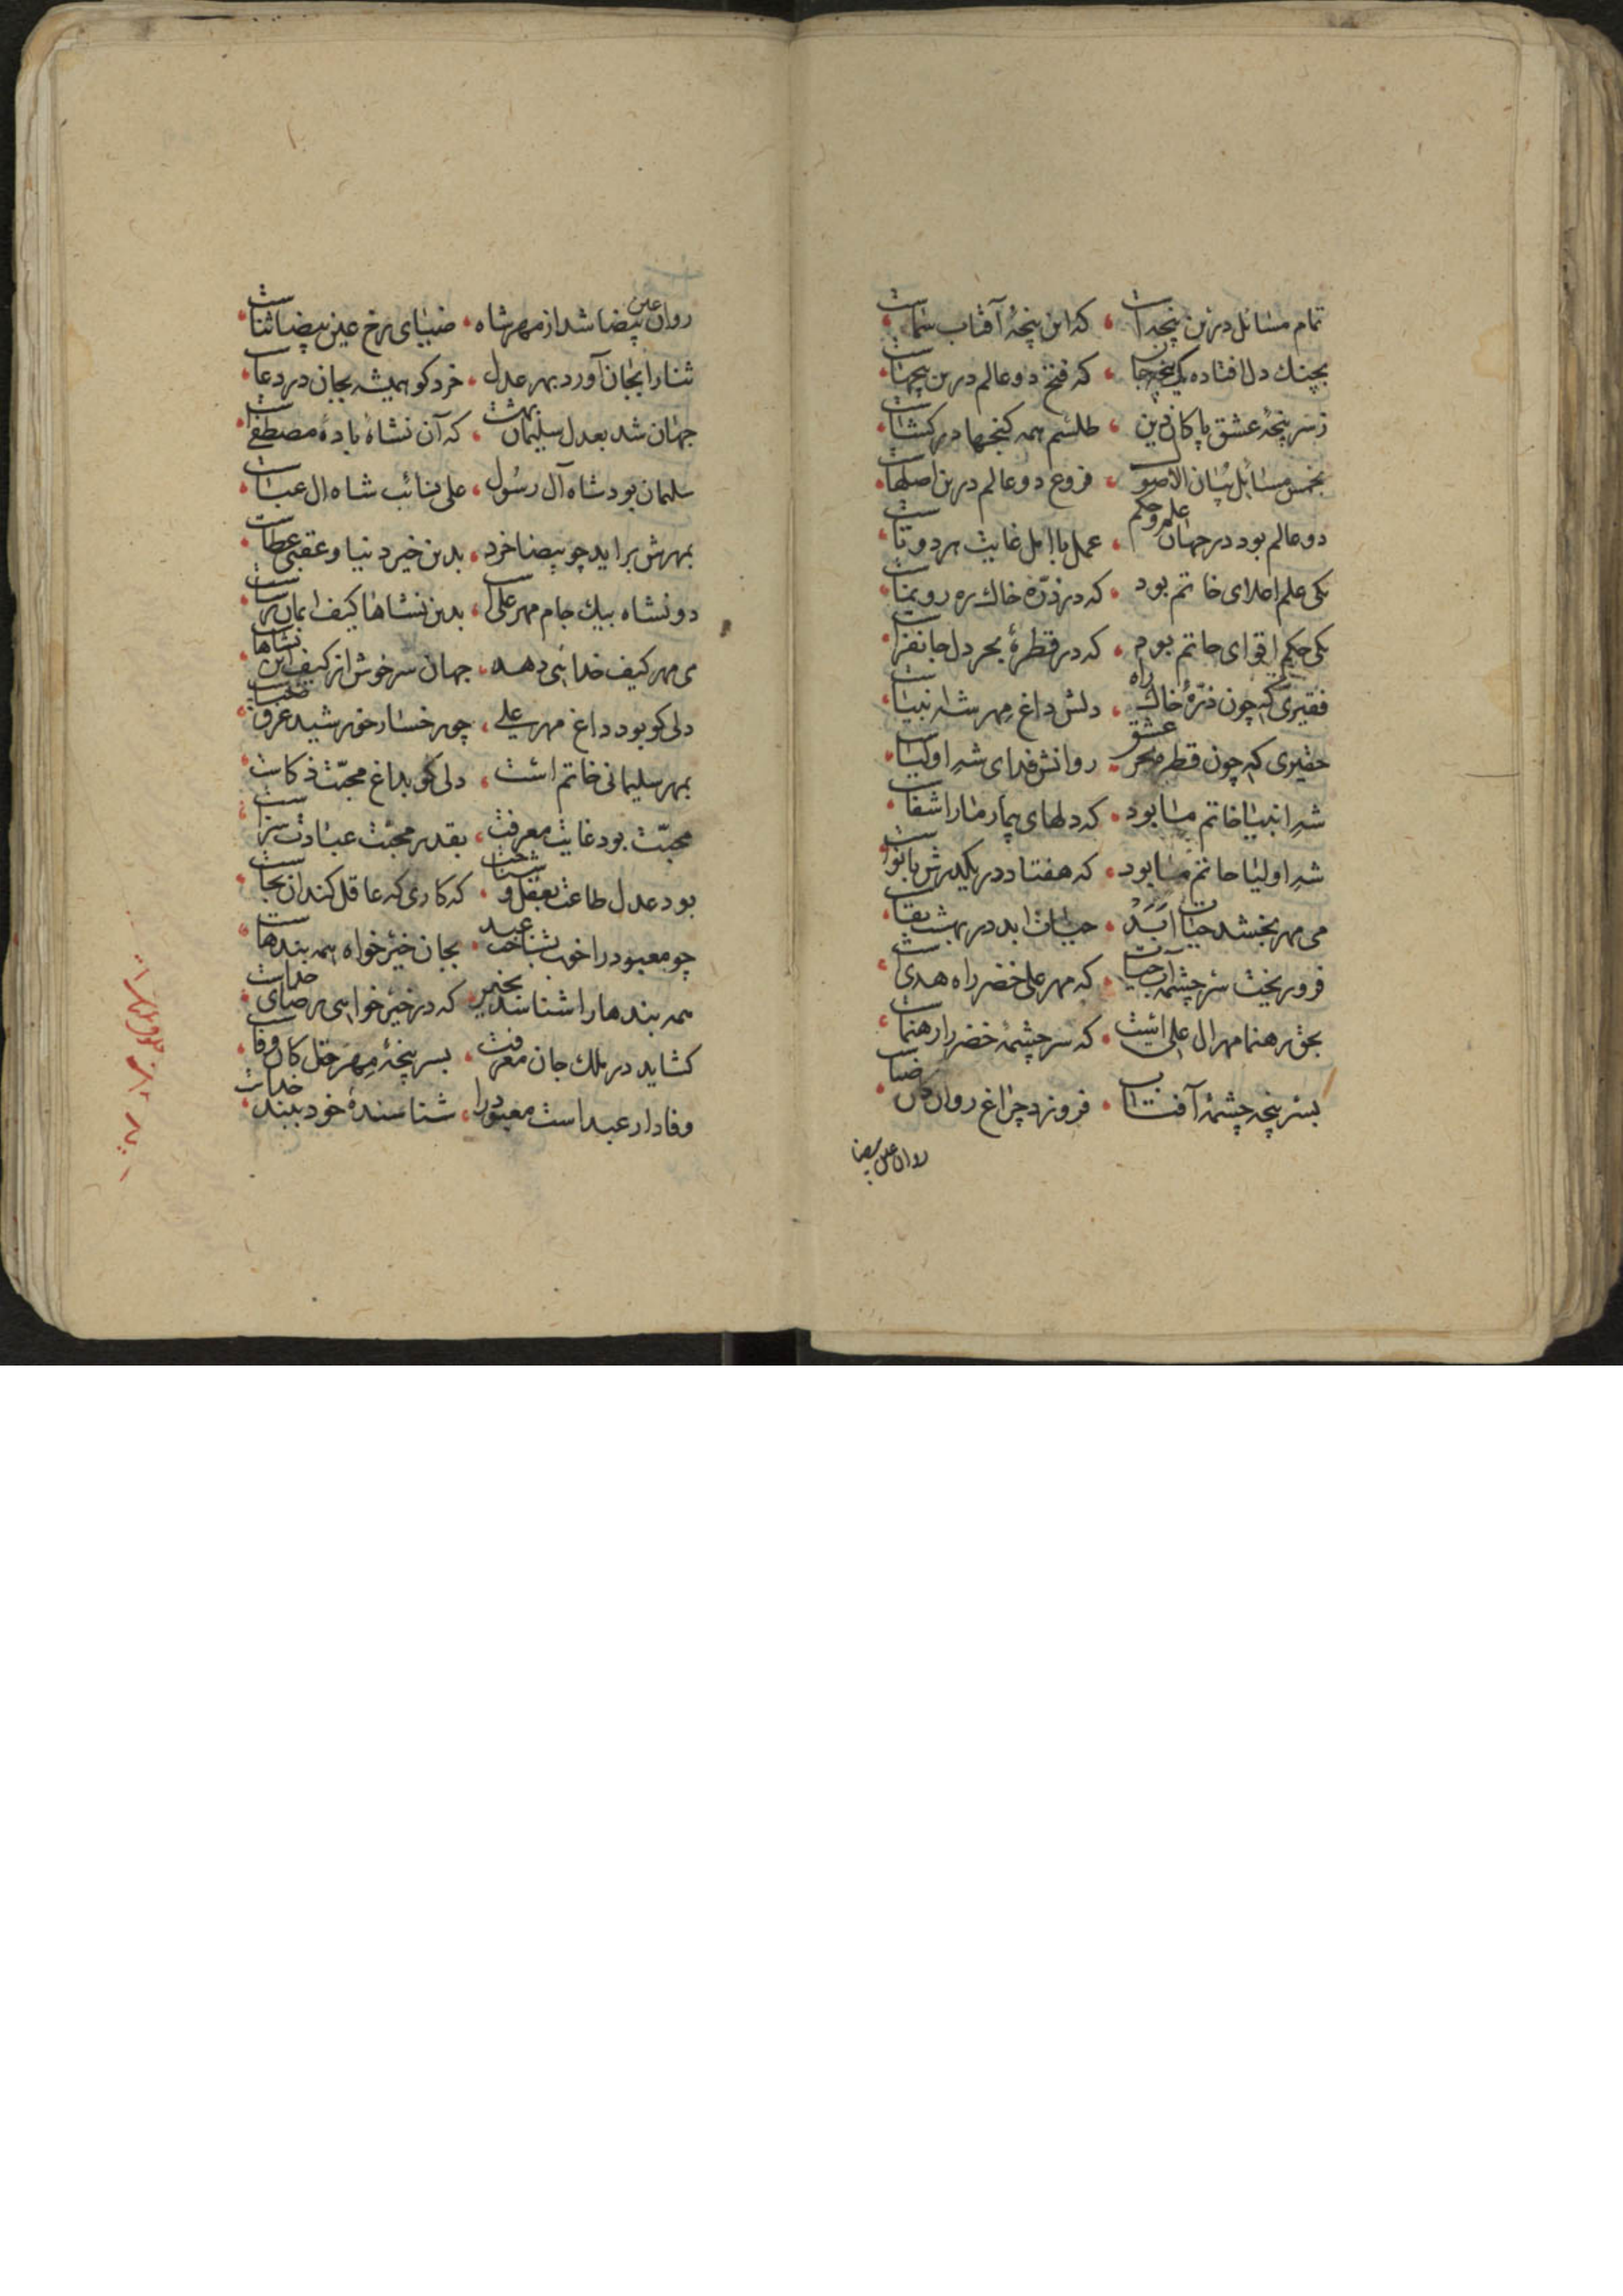 تمام مسائل درین پنجه است که این پنجهٔ آفتاب سماست
بچنك دل افتاده یك پنج جان که فتح دو عالم درین پنجهاست
ز سر پنجهٔ عشق پاکان دین طلسم همه کنجها در کشاست
بخمس مسائل بیان الاصول فروع دو عالم درین اصلهاست
دو عالم بود در جهان علم و حکم عمل با امل غایت هر دوتاست
یکی علم اعلای خاتم بود که در ذرّهٔ خاك ره رونماست
یکی حکم اقوای حاتم بود که در قطرهٔ بحر دل جانفزاست
فقیری که چون ذرّهٔ خاك راه دلش داغ مهر شه انبیاست
حقیری که چون قطرهٔ بحر عشق روانش فدای شه اولیاست
شه انبیا خاتم ما بود که دلهای بیمار ما را شفاست
شه اولیا حاتم ما بود که هفتاد در یکدرش با نواست
می مهر بخشد حیات ابد حیات ابد در بهشت بقاست
فرو ریخت سر چشمهٔ آب حیات که مهر علی خضر راه هدی است
بحق رهنما مهر ال علی است که سر چشمهٔ خضر را رهنماست
بسر پنجه چشمهٔ آفتاب فروزد چراغ روان کش ضیاست
روان عین بیضا
روان عین بیضا شد از مهر شاه ضیای رخ عین بیضا ثناست
ثنا را بجان آورد بهر عدل خرد کو همیشه بجان در دعاست
جهان شد بعدل سلیمان بهشت که آن نشاهٔ بادهٔ مصطفاست
سلیمان بود شاه آل رسول علی نائب شاه ال عباست
بمهرش براید چو بیضا خرد بدین خیر دنیا و عقبی عطاست
دو نشاه بیك جام مهر علی است بدین نشاها کیف ایمان رساست
می مهر کیف خدائی دهد جهان سرخوش از کیف این نشاهاست
دلی کو بود داغ مهر علی چو رخسار خورشید غرق ضیاست
بمهر سلیمانی خاتم است دلی کو بداغ محبّت ذکاست
محبّت بود غایت معرفت بقدر محبّت عبادت سزاست
بود عدل طاعت بعقل و شناخت که کاری که عاقل کند ان بجاست
چو معبود را خوب بشناخت عبد بجان خیر خواه همه بندهاست
همه بندها را شناسد بخیر که در خیر خواهی رضای خداست
کشاید در ملك جان معرفت بسر پنجهٔ مهر حق کان وفاست
وفادار عبد است معبود را شناسندهٔ خود ببند خداست